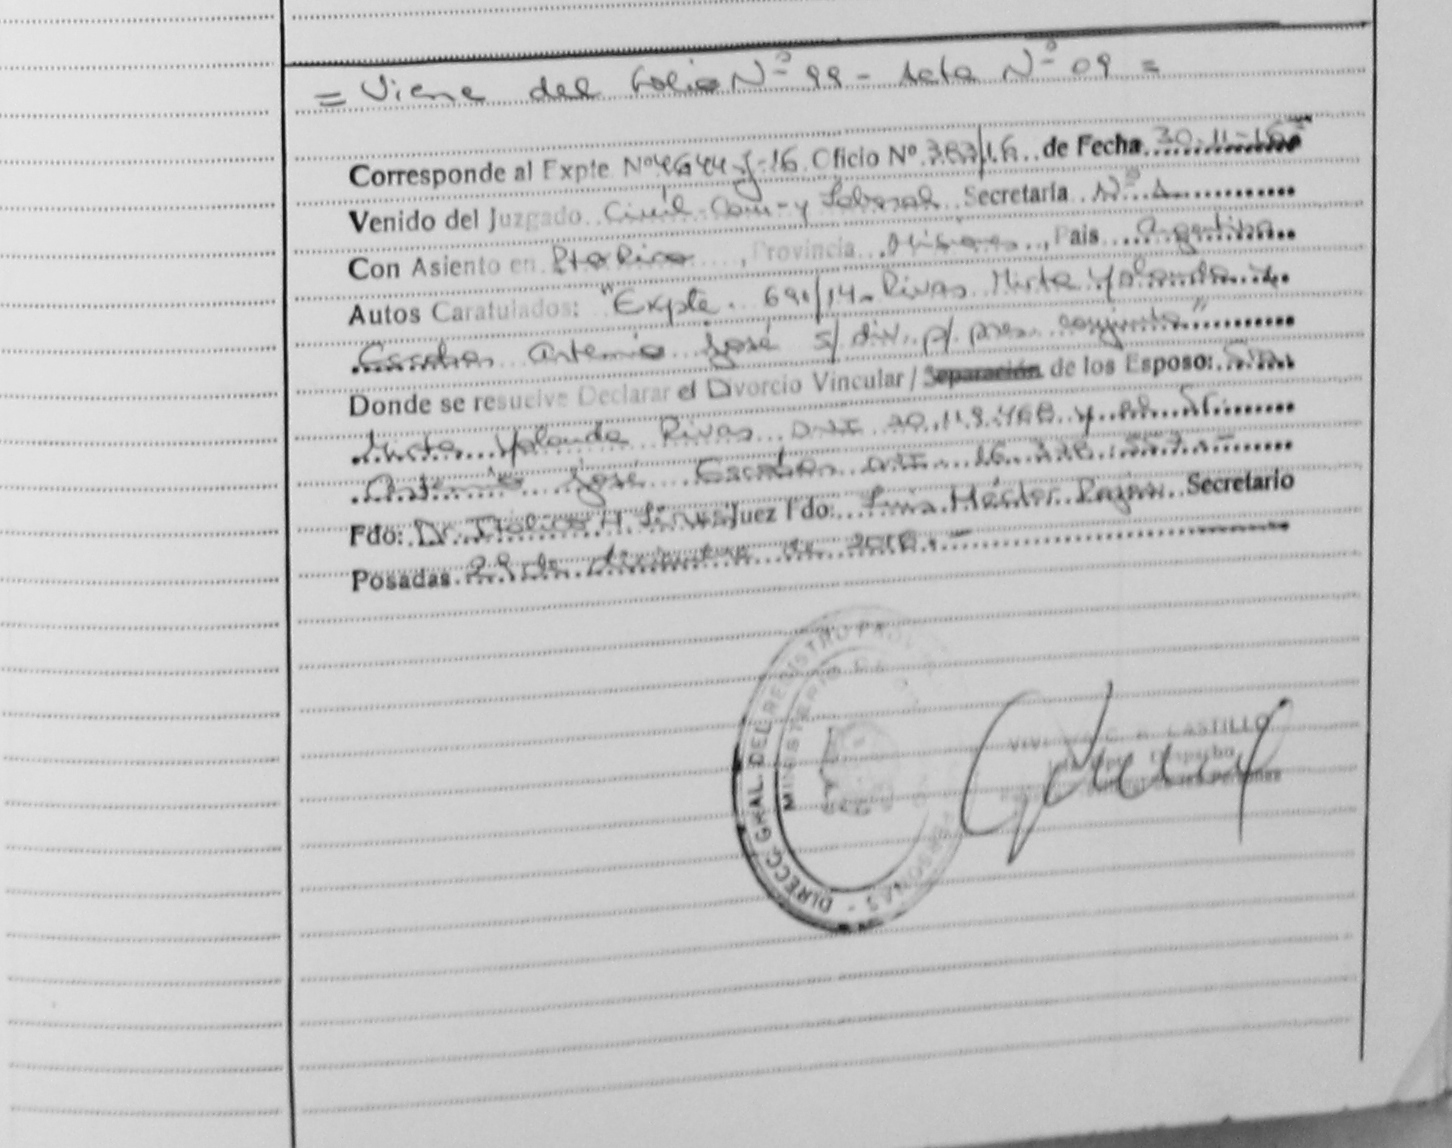 = Viene del folio Nº 99 - Acta Nº 09 =
Corresponde al Expte Nº 4644-J-16. Oficio Nº 383/16. de Fecha 30-11-16
Venido del Juzgado Civil Com-y Laboral Secretaría Nº 1
Con Asiento en Pto Rico, Provincia Misiones, Pais Argentina
Autos Caratulados: "Expte. 691/14- Rivas Mirta Yolanda y
Escobar Artemio José s/ div. p/ pres. conjunta"
Donde se resuelve Declarar el Divorcio Vincular / Separación de los Esposo:
Mirta Yolanda Rivas DNI y
Artemio José Escobar DNI 16.
Fdo: Dr. H. Juez Fdo: Luis Héctor Secretario
Posadas 29 de diciembre de 2016.-
DIRECC. GRAL. DEL REGISTRO PROV. PERSONAS -
MINISTERIO DE
C. A. CASTILLO
Despacho